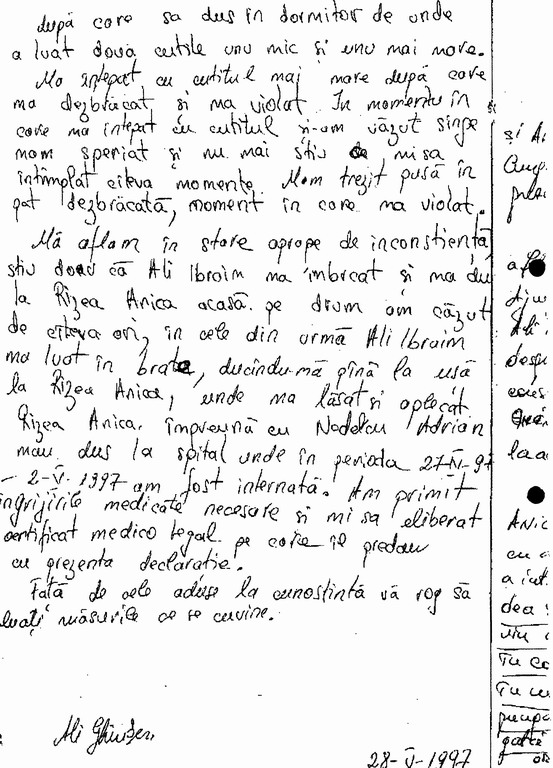 după care sa dus în dormitor de unde
a luat două cutite unu mic și unu mai mare.
Ma întepat cu cutitul mai mare după care
ma dezbrăcat si ma violat. In momentu în
care ma întepat cu cutitul și-am văzut sînge
mam speriat și nu mai stiu ce misa
întîmplat cîteva momente. Mam trezit pusă în
pat dezbrăcată, moment în care ma violat.
Mă aflam în stare aprope de inconstientă
stiu doar că Ali Ibraim ma îmbrcat si ma du
la Rizea Anica acasă. pe drum am căzut
de cîteva ori, în cele din urmă Ali Ibraim
ma luat în brate, ducîndu-mă pînă la usă
la Rizea Anica, unde ma lăsat si aplecat
Rizea Anica. împreună cu Nadelcu Adrian
mau dus la spital unde în perioada 27-IV-97
- 2-V-1997 am fost internată. Am primit
ingrijirile medicale necesare si mi sa eliberat
certificat medico legal. pe care îl predau
cu prezenta declaratie.
Fată de cele aduse la cunostintă vă rog să
luați măsurile ce se cuvine.
Ali
28-V-1997
și A
ANIC
cu a
a
dea
Tu ca
Tu